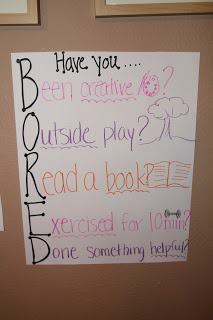 Have you....
Been creative?
Outside play?
Read a book?
Exercised for 10 min?
Done something helpful?